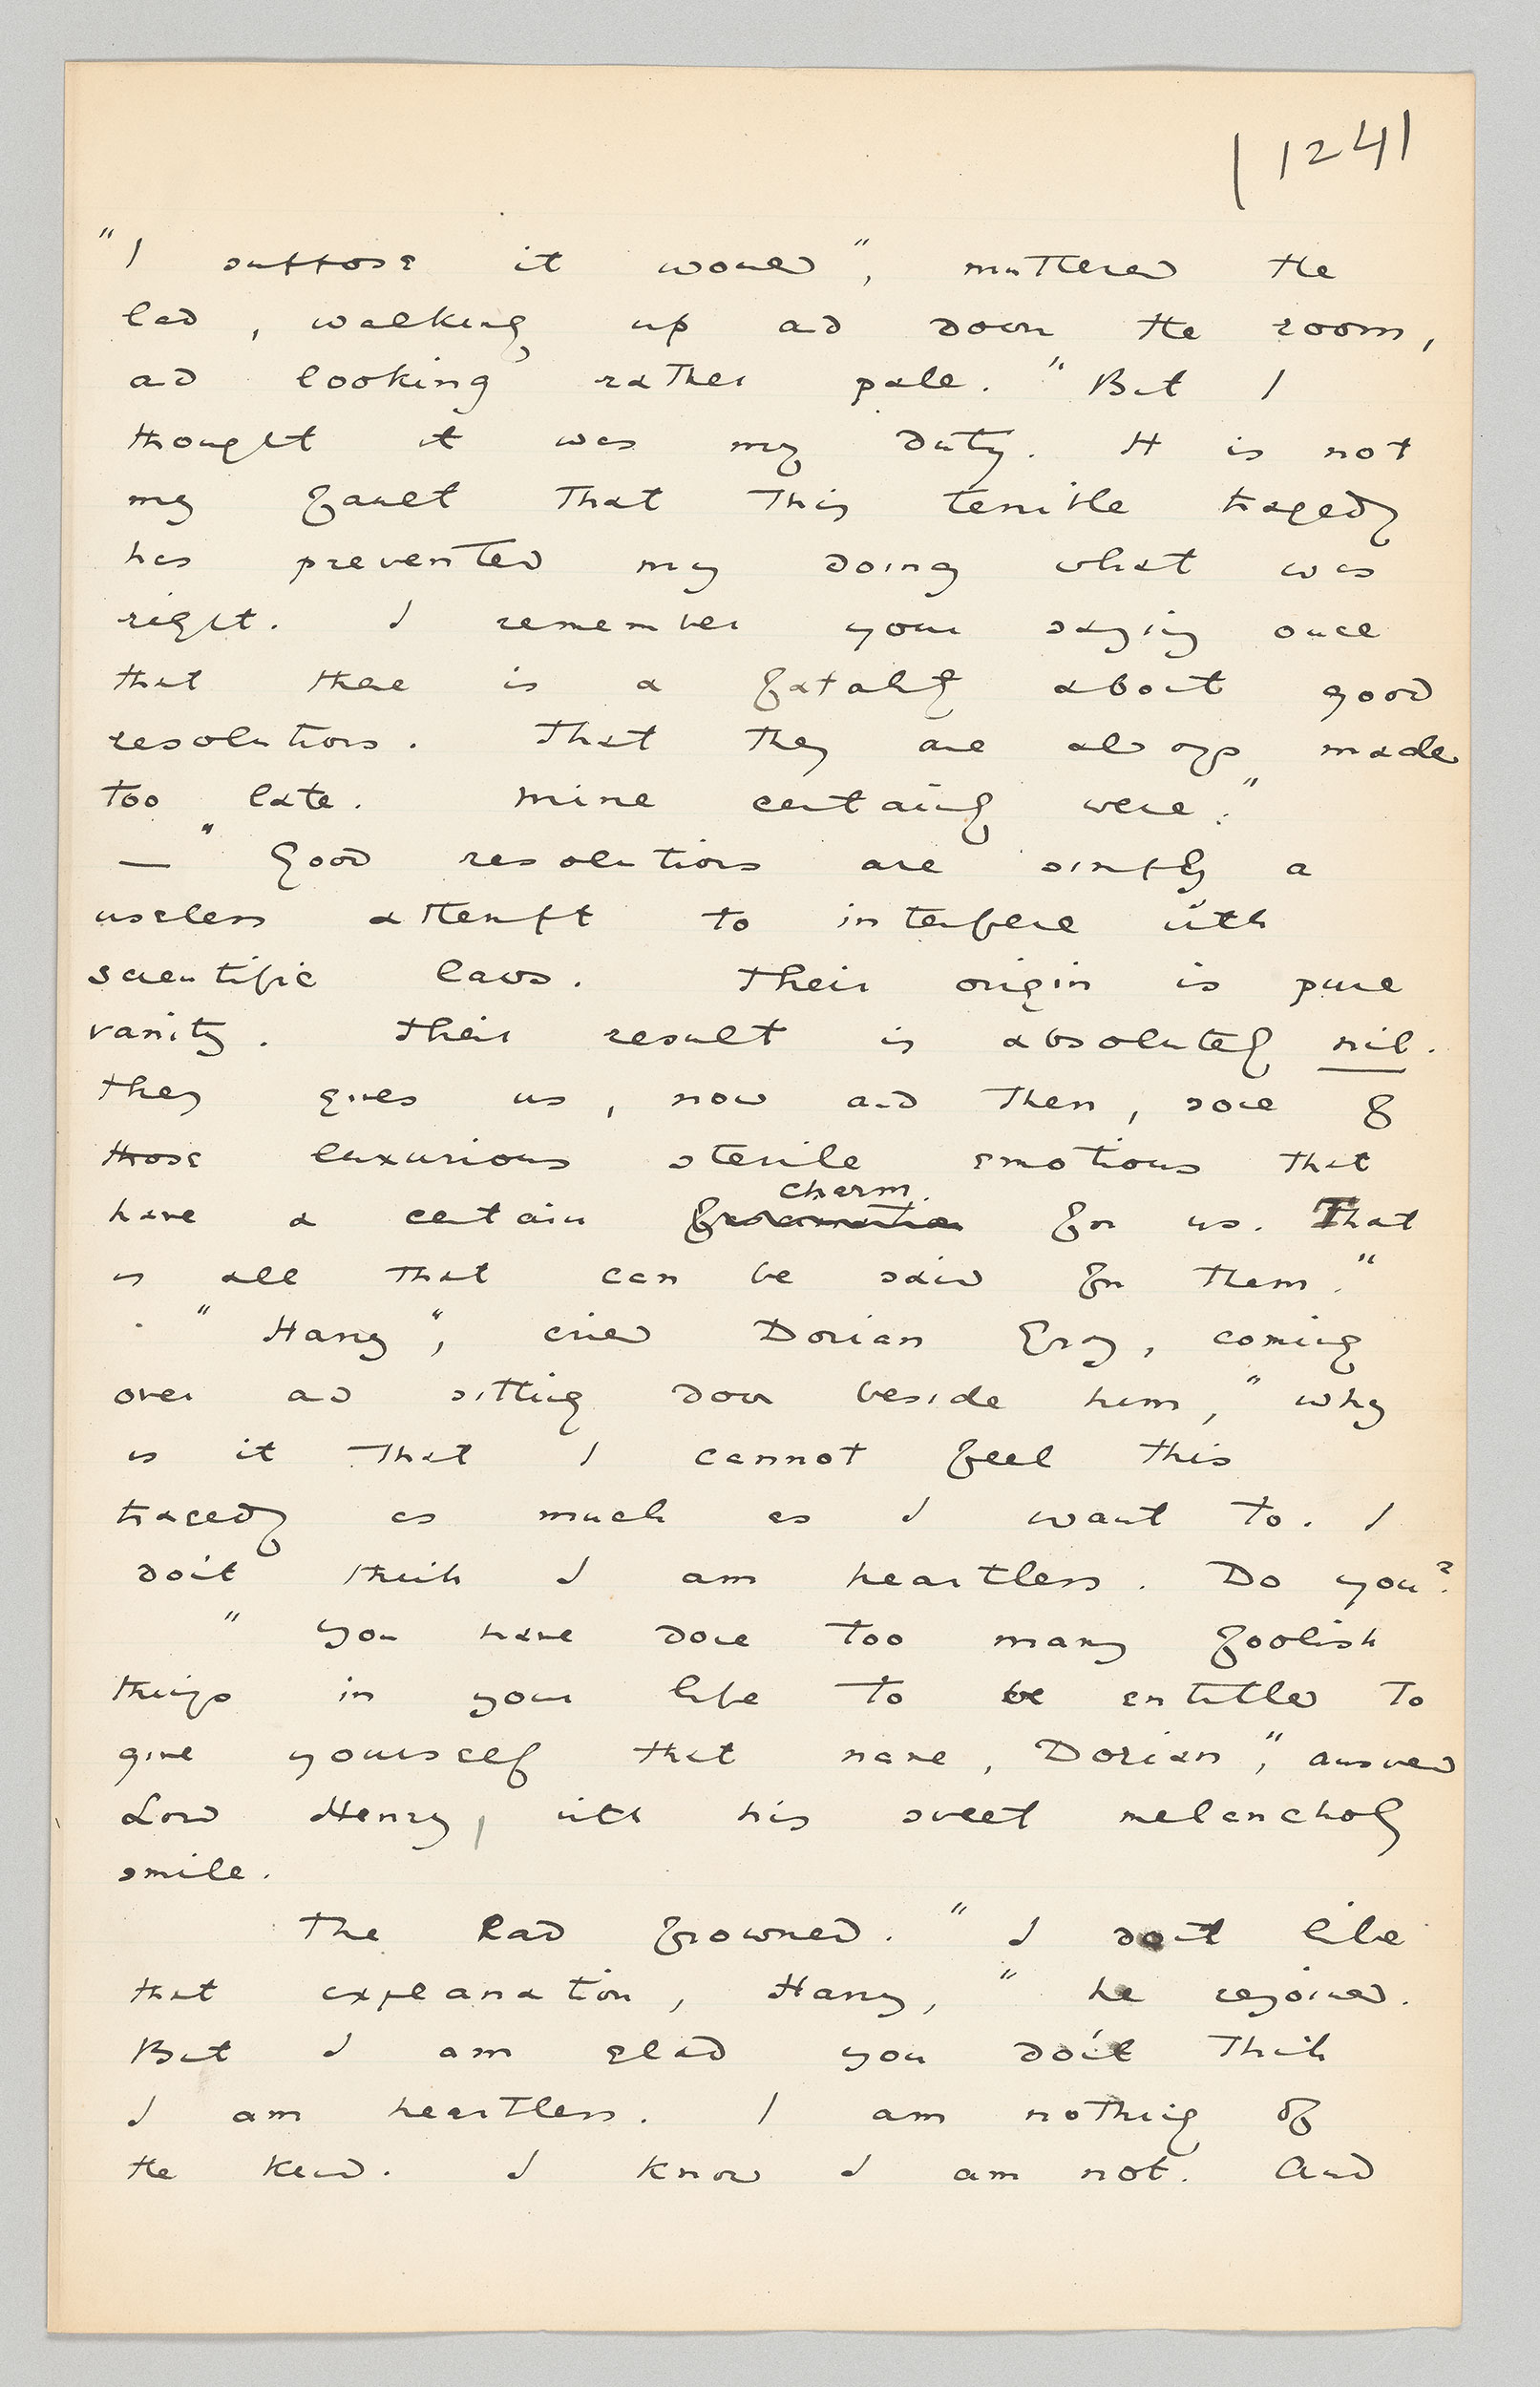 124
"I suppose it would", muttered the
lad, walking up and down the room,
and looking rather pale. "But I
thought it was my duty. It is not
my fault that this terrible tragedy
has prevented my doing what was
right. I remember your saying once
that there is a fatality about good
resolutions. That they are always made
too late. Mine certainly were."
— "Good resolutions are simply a
useless attempt to interfere with
scientific laws. Their origin is pure
vanity. Their result is absolutely nil.
They gives us, now and then, some of
those luxurious sterile emotions that
charm.
have a certain fascination for us. That
is all that can be said for them."
"Harry", cried Dorian Gray, coming
over and sitting down beside him, "why
is it that I cannot feel this
tragedy as much as I want to. I
don't think I am heartless. Do you?
"You have done too many foolish
things in your life to be entitled to
give yourself that name, Dorian", answered
Lord Henry, with his sweet melancholy
smile.
The lad frowned. "I don't like
that explanation, Harry," he rejoined.
But I am glad you don't think
I am heartless. I am nothing of
the kind. I know I am not. And